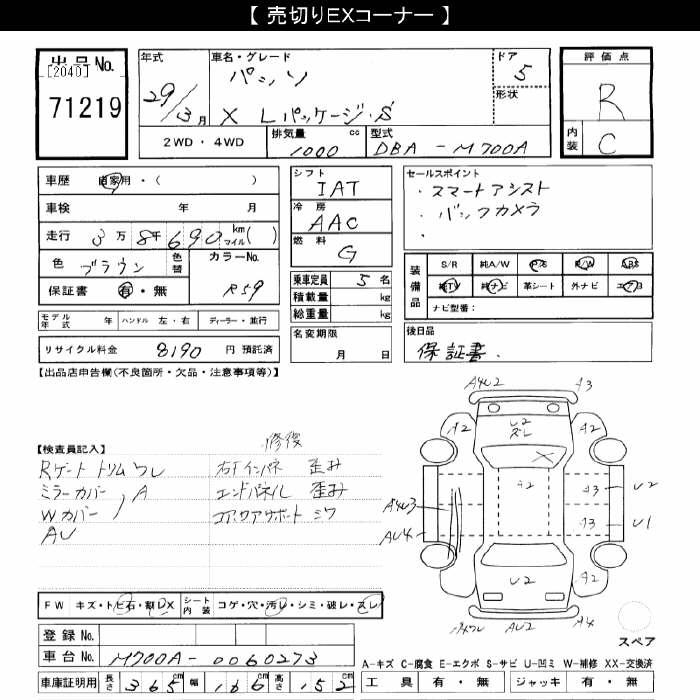 【 売切りEXコーナー 】
出品No.
[2040]
71219
年式
29/3月
車名・グレード
パッソ
X Lパッケージ・S
ドア
5
形状
2WD・4WD
排気量 cc
1000
型式
DBA-M700A
評価点
R
内装
C
車歴 自家用・( )
車検 年 月
走行 3万8千690 km マイル( )
色 ブラウン
色替
カラーNo.
R59
保証書 有・無
モデル年式 年 ハンドル 左・右 ディーラー・並行
リサイクル料金 8190 円 預託済
シフト
IAT
冷房
AAC
燃料
G
乗車定員 5 名
積載量 kg
総重量 kg
名変期限
月 日
セールスポイント
・スマートアシスト
・バックカメラ
・
装備品
S/R 純A/W P/S P/W ABS
純TV 純ナビ 革シート 外ナビ エアB
ナビ型番:
後日品
保証書.
【出品店申告欄(不良箇所・欠品・注意事項等)】
【検査員記入】
修復
Rゲートトリムワレ
ミラーカバー
Wカバー
A
AU
右Fインパネ 歪み
エンドパネル 歪み
コア.ロアサポート シワ
A4U2
A3
A2
U2
A2
A2
A4U3
AU4
A3
U2
A3
U1
A2
U2
A2
AU2
A4
スペア
FW キズ・トビ石・割レX シート内装 コゲ・穴・汚レ・シミ・破レ・スレ
登録No.
車台No. M700A-0060273
車庫証明用 長さ 365cm 幅 166cm 高さ 152cm
A-キズ C-腐食 E-エクボ S-サビ U-凹ミ W-補修 XX-交換済
工具 有・無 ジャッキ 有・無